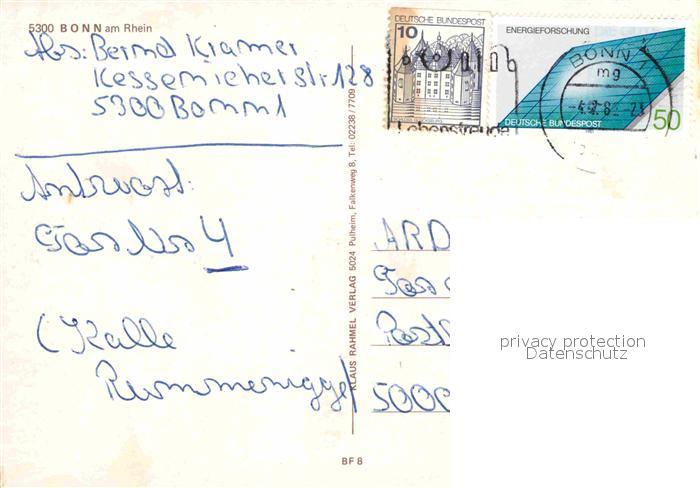 5300 BONN am Rhein
Abs: Bernd Kramer
Kessenicher Str. 128
5300 Bonn 1
Antwort:
Tor Nr 4
(Kalle
Rummenigge)
KLAUS RAHMEL VERLAG 5024 Pulheim, Falkenweg 8, Tel: 02238/7709
BF 8
DEUTSCHE BUNDESPOST
10
ENERGIEFORSCHUNG
DEUTSCHE BUNDESPOST
50
BONN 1
mg
Lebensfreude
ARD
Tor
Post
5000
privacy protection
Datenschutz